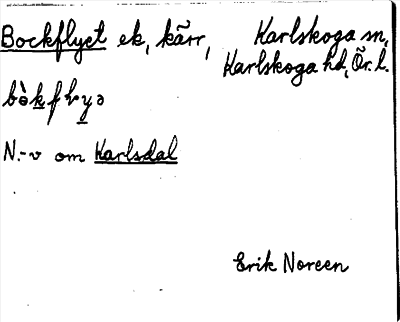 Bockflyet ek, kärr, Karlskoga sn,
Karlskoga hd, Ör. l.
N.-v om Karlsdal
Erik Noreen